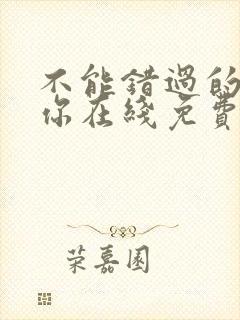 不能错过的
你在线免费
荣嘉园